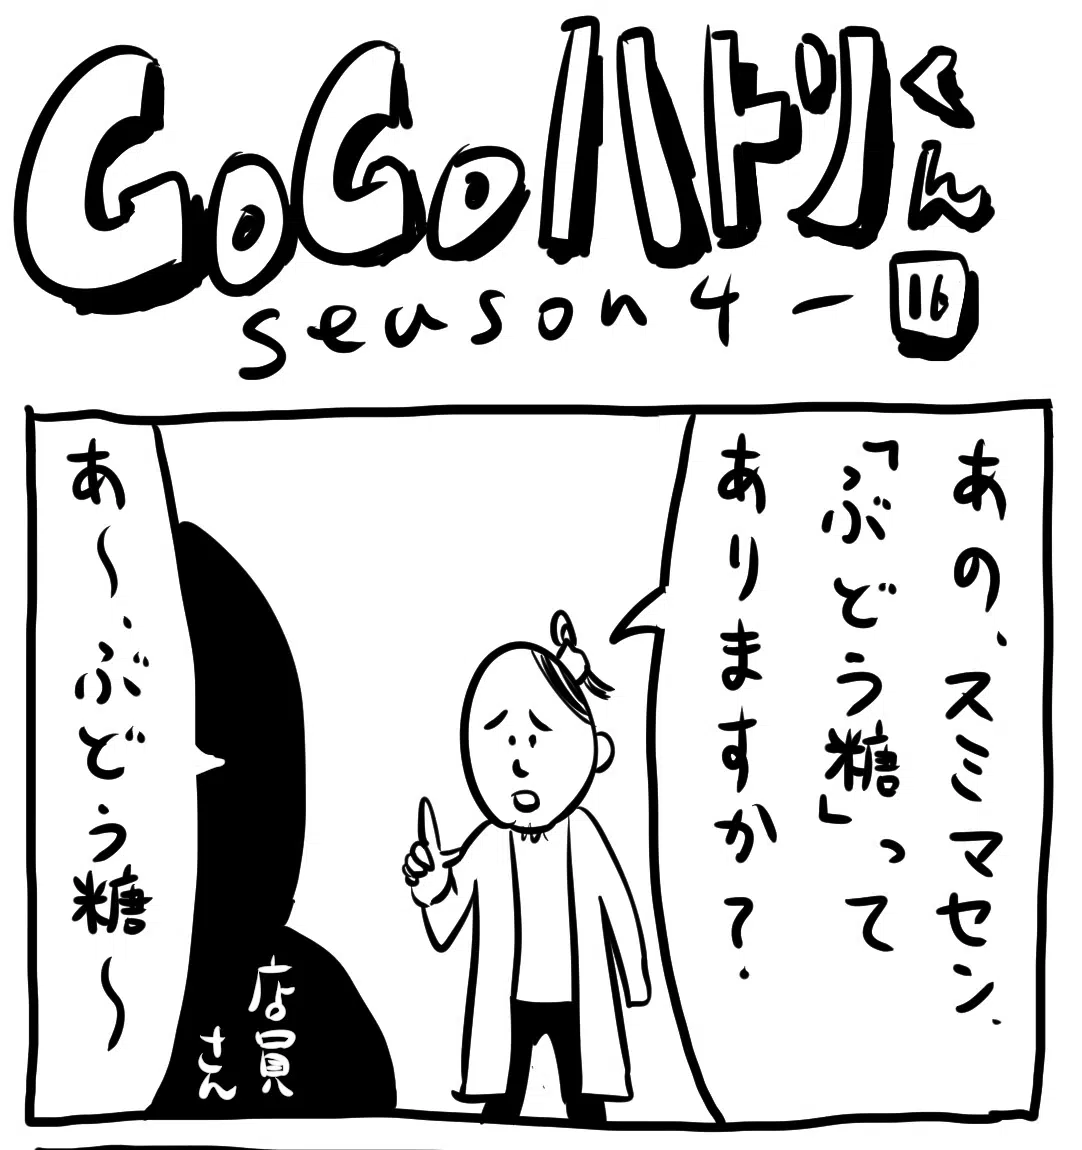 GOGOハトリくん
season4-16
あの、スミマセン、
「ぶどう糖」って
ありますか?
あ〜、ぶどう糖〜
店員
さん